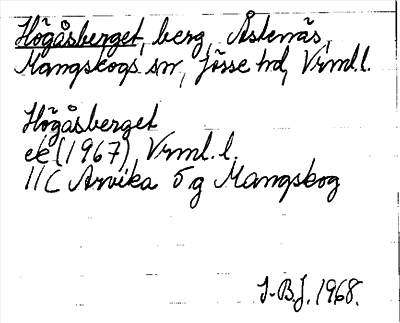 Högåsberget, berg, Åstenäs,
Mangskogs sn, Jösse hd, Vrml.l.
Högåsberget
ek (1967), Vrml.l.
11C Arvika 5g Mangskog
J-B.J. 1968.